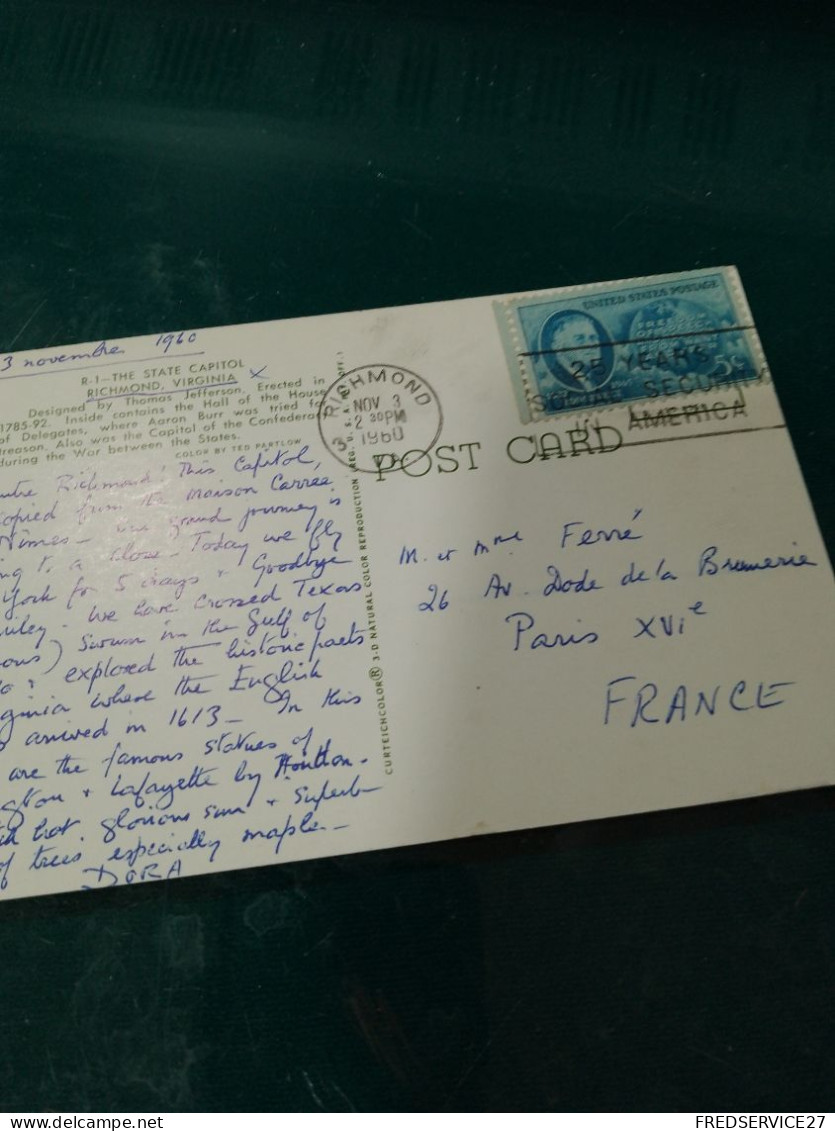 3 novembre 1960
R-1—THE STATE CAPITOL
RICHMOND, VIRGINIA x
Designed by Thomas Jefferson. Erected in
1785-92. Inside contains the Hall of the House
of Delegates, where Aaron Burr was tried for
treason. Also was the Capitol of the Confederacy
during the War between the States.
COLOR BY TED PARTLOW
Richmond! This Capitol,
copied from the Maison Carree
Nimes - our grand journey is
to a close - Today we fly
York for 5 days & Goodbye
We have crossed Texas
swum in the Gulf of
& explored the historic parts
ginia where the English
arrived in 1613 - In this
are the famous statues of
gton & Lafayette by Houdon -
hot, glorious sun & superb
of trees, especially maple -
DORA
CURTEICHCOLOR® 3-D NATURAL COLOR REPRODUCTION (REG. U.S.A.
RICHMOND
NOV 3
2 30PM
1960
VA
3
UNITED STATES POSTAGE
5¢
25 YEARS
SOCIAL SECURITY
IN AMERICA
POST CARD
M. et Mme Ferré
26 Av. Dode de la Brunerie
Paris XVIe
FRANCE
FREDSERVICE27